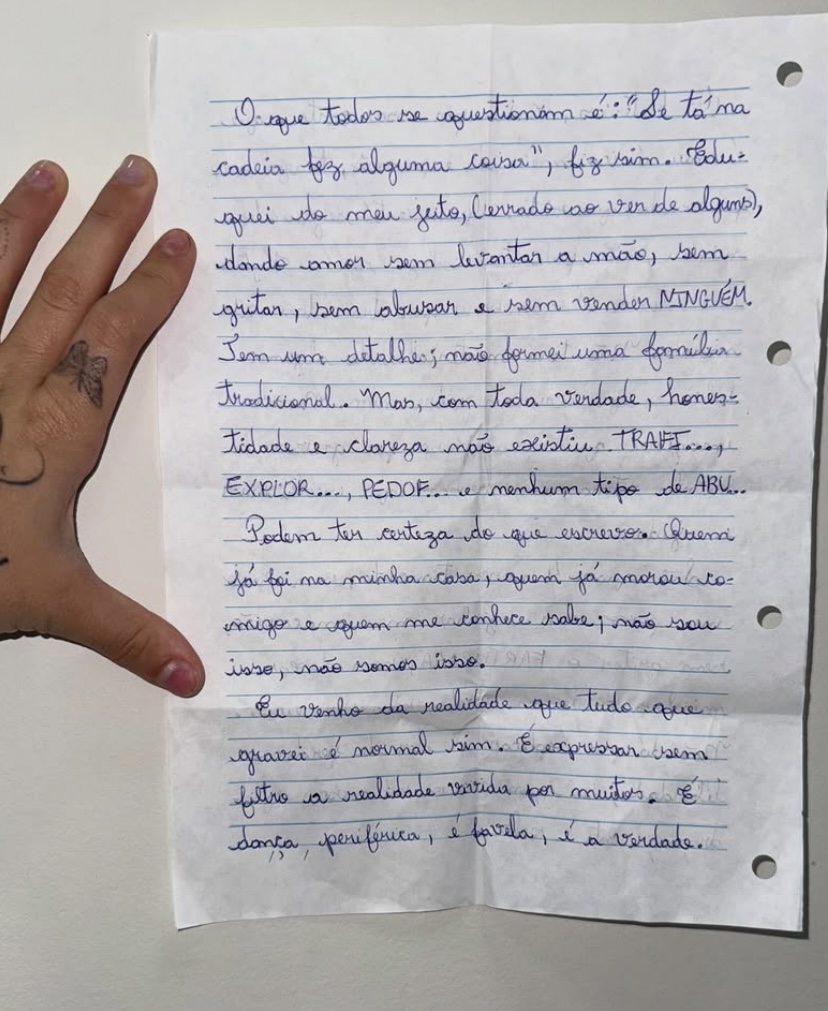 O que todos se questionam é: "Se tá na
cadeia fez alguma coisa", fiz sim. Edu-
quei do meu jeito, (errado ao ver de alguns),
dando amor sem levantar a mão, sem
gritar, sem abusar e sem vender NINGUÉM.
Tem um detalhe; não formei uma família
tradicional. Mas, com toda verdade, hones-
tidade e clareza não existiu TRAFI...,
EXPLOR..., PEDOF... e nenhum tipo de ABU...
Podem ter certeza do que escrevo. Quem
já foi na minha casa, quem já morou co-
migo e quem me conhece sabe; não sou
isso, não somos isso.
Eu venho da realidade que tudo que
gravei é normal sim. É expressar sem
filtro a realidade vivida por muitos. É
dança, periférica, é favela, é a verdade.